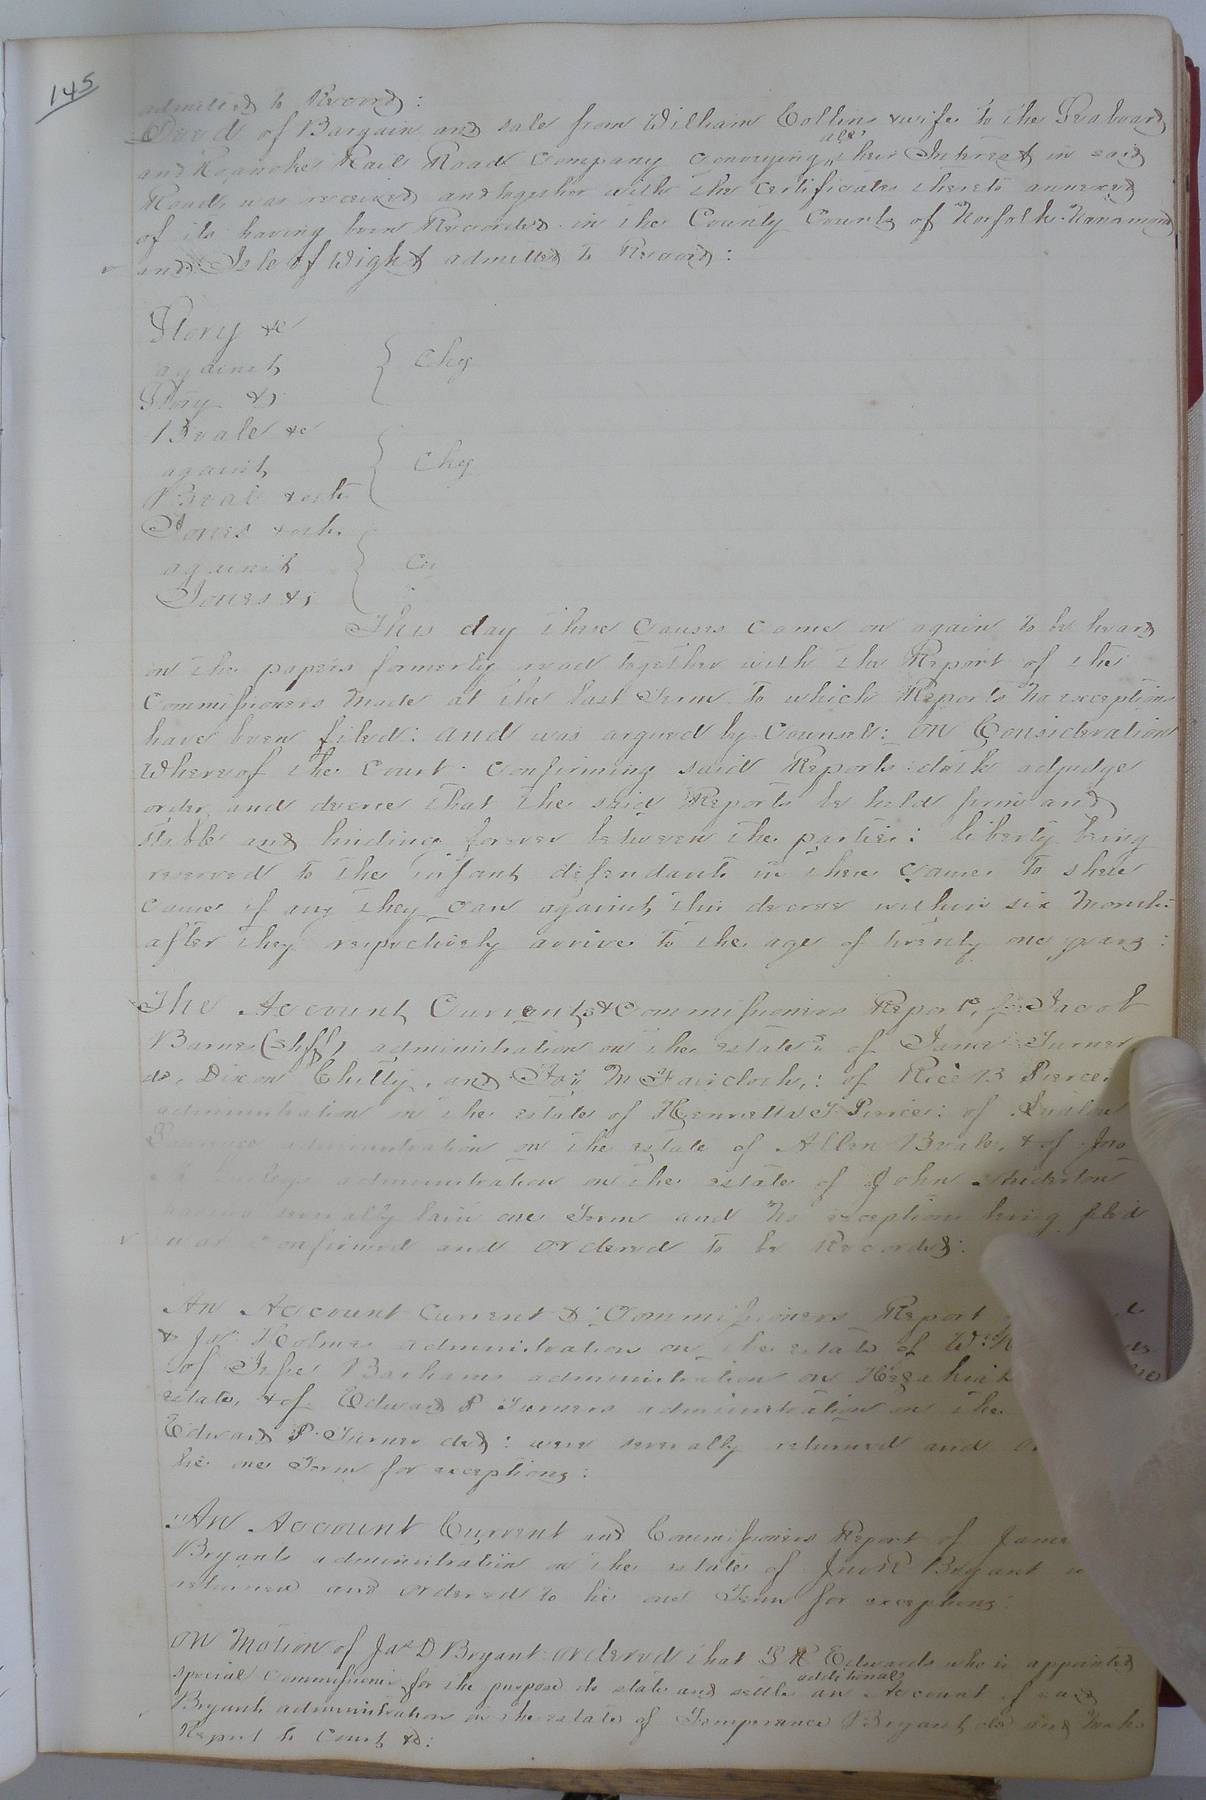 145
admitted to Record:
Deed of Bargain and sale from William Collins & wife to the Seaboard
and Roanoke Rail Road Company Conveying all their Interest in said
Road, was received and together with the Certificates thereto annexed
of its having been Recorded in the County Courts of Norfolk Nansemond
and Isle of Wight admitted to Record:
Story &c
against
Story &c
Chy
Beale &c
against
Beale & oth
Chy
Jones & oth
against
Jones &c
This day these Causes came on again to be heard
on the papers formerly read together with the Report of the
Commissioners made at the last Term to which Reports no exceptions
have been filed: and was argued by Counsel: on Consideration
Whereof the Court Confirming said Reports doth adjudge
order and decree that the said Reports be held firm and
stable and binding forever between the parties: liberty being
reserved to the infant defendants in these causes to shew
cause if any they can against this decree within six months
after they respectively arrive to the age of twenty one years:
The Account Current & Commissioners Report, for Jacob
Barnes (shff) administration on the estates of James Turner
do, Dixon Chitty, and Jas M Faircloth,: of Rice B Pierce
administration on the estate of Henrietta T Pierce: of
administration on the estate of Allen Beale, & of Jno
administration on the estate of John
having severally lain one Term and no exceptions being filed
was Confirmed and ordered to be Recorded:
An Account Current & Commissioners Report
& Jas Holmes administration on the estate of Wm
of Jesse Barhams administration on Hezekiah
estate, & of Edward P Turners administration on the
Edward P. Turner decd: were severally returned and
lie one Term for exceptions:
An Account Current and Commissioners Report of James
Bryants administration on the estate of Jno R Bryant
returned and ordered to lie one Term for exceptions:
on Motion of Jas D Bryant ordered that S R Edwards who is appointed
special Commissioner for the purpose do state and settle an additional Account of said
Bryants administration on the estate of Temperance Bryant do and make
Report to Court &c: